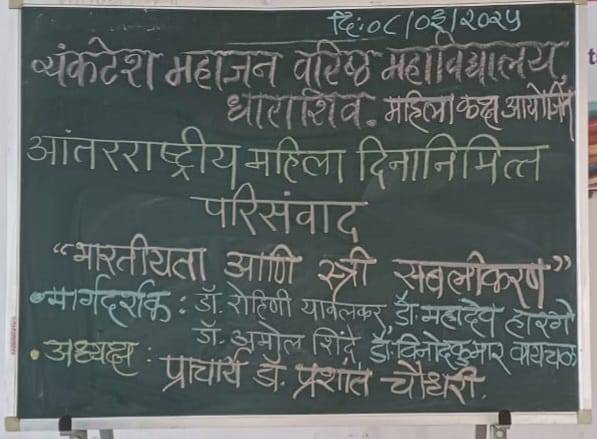 दि:०८/०३/२०२५
व्यंकटेश महाजन वरिष्ठ महाविद्यालय,
धाराशिव. महिला कक्ष आयोजित
आंतरराष्ट्रीय महिला दिनानिमित्त
परिसंवाद
"भारतीयता आणि स्त्री सबलीकरण"
•मार्गदर्शक : डॉ. रोहिणी यावलकर डॉ. महादेव हारगे
डॉ. अमोल शिंदे डॉ. विनोदकुमार वायचळ
• अध्यक्ष : प्राचार्य डॉ. प्रशांत चौधरी.